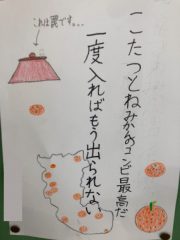 こたつとねみかんのコンビ最高だ
一度入ればもう出られない
これは罠です。。。